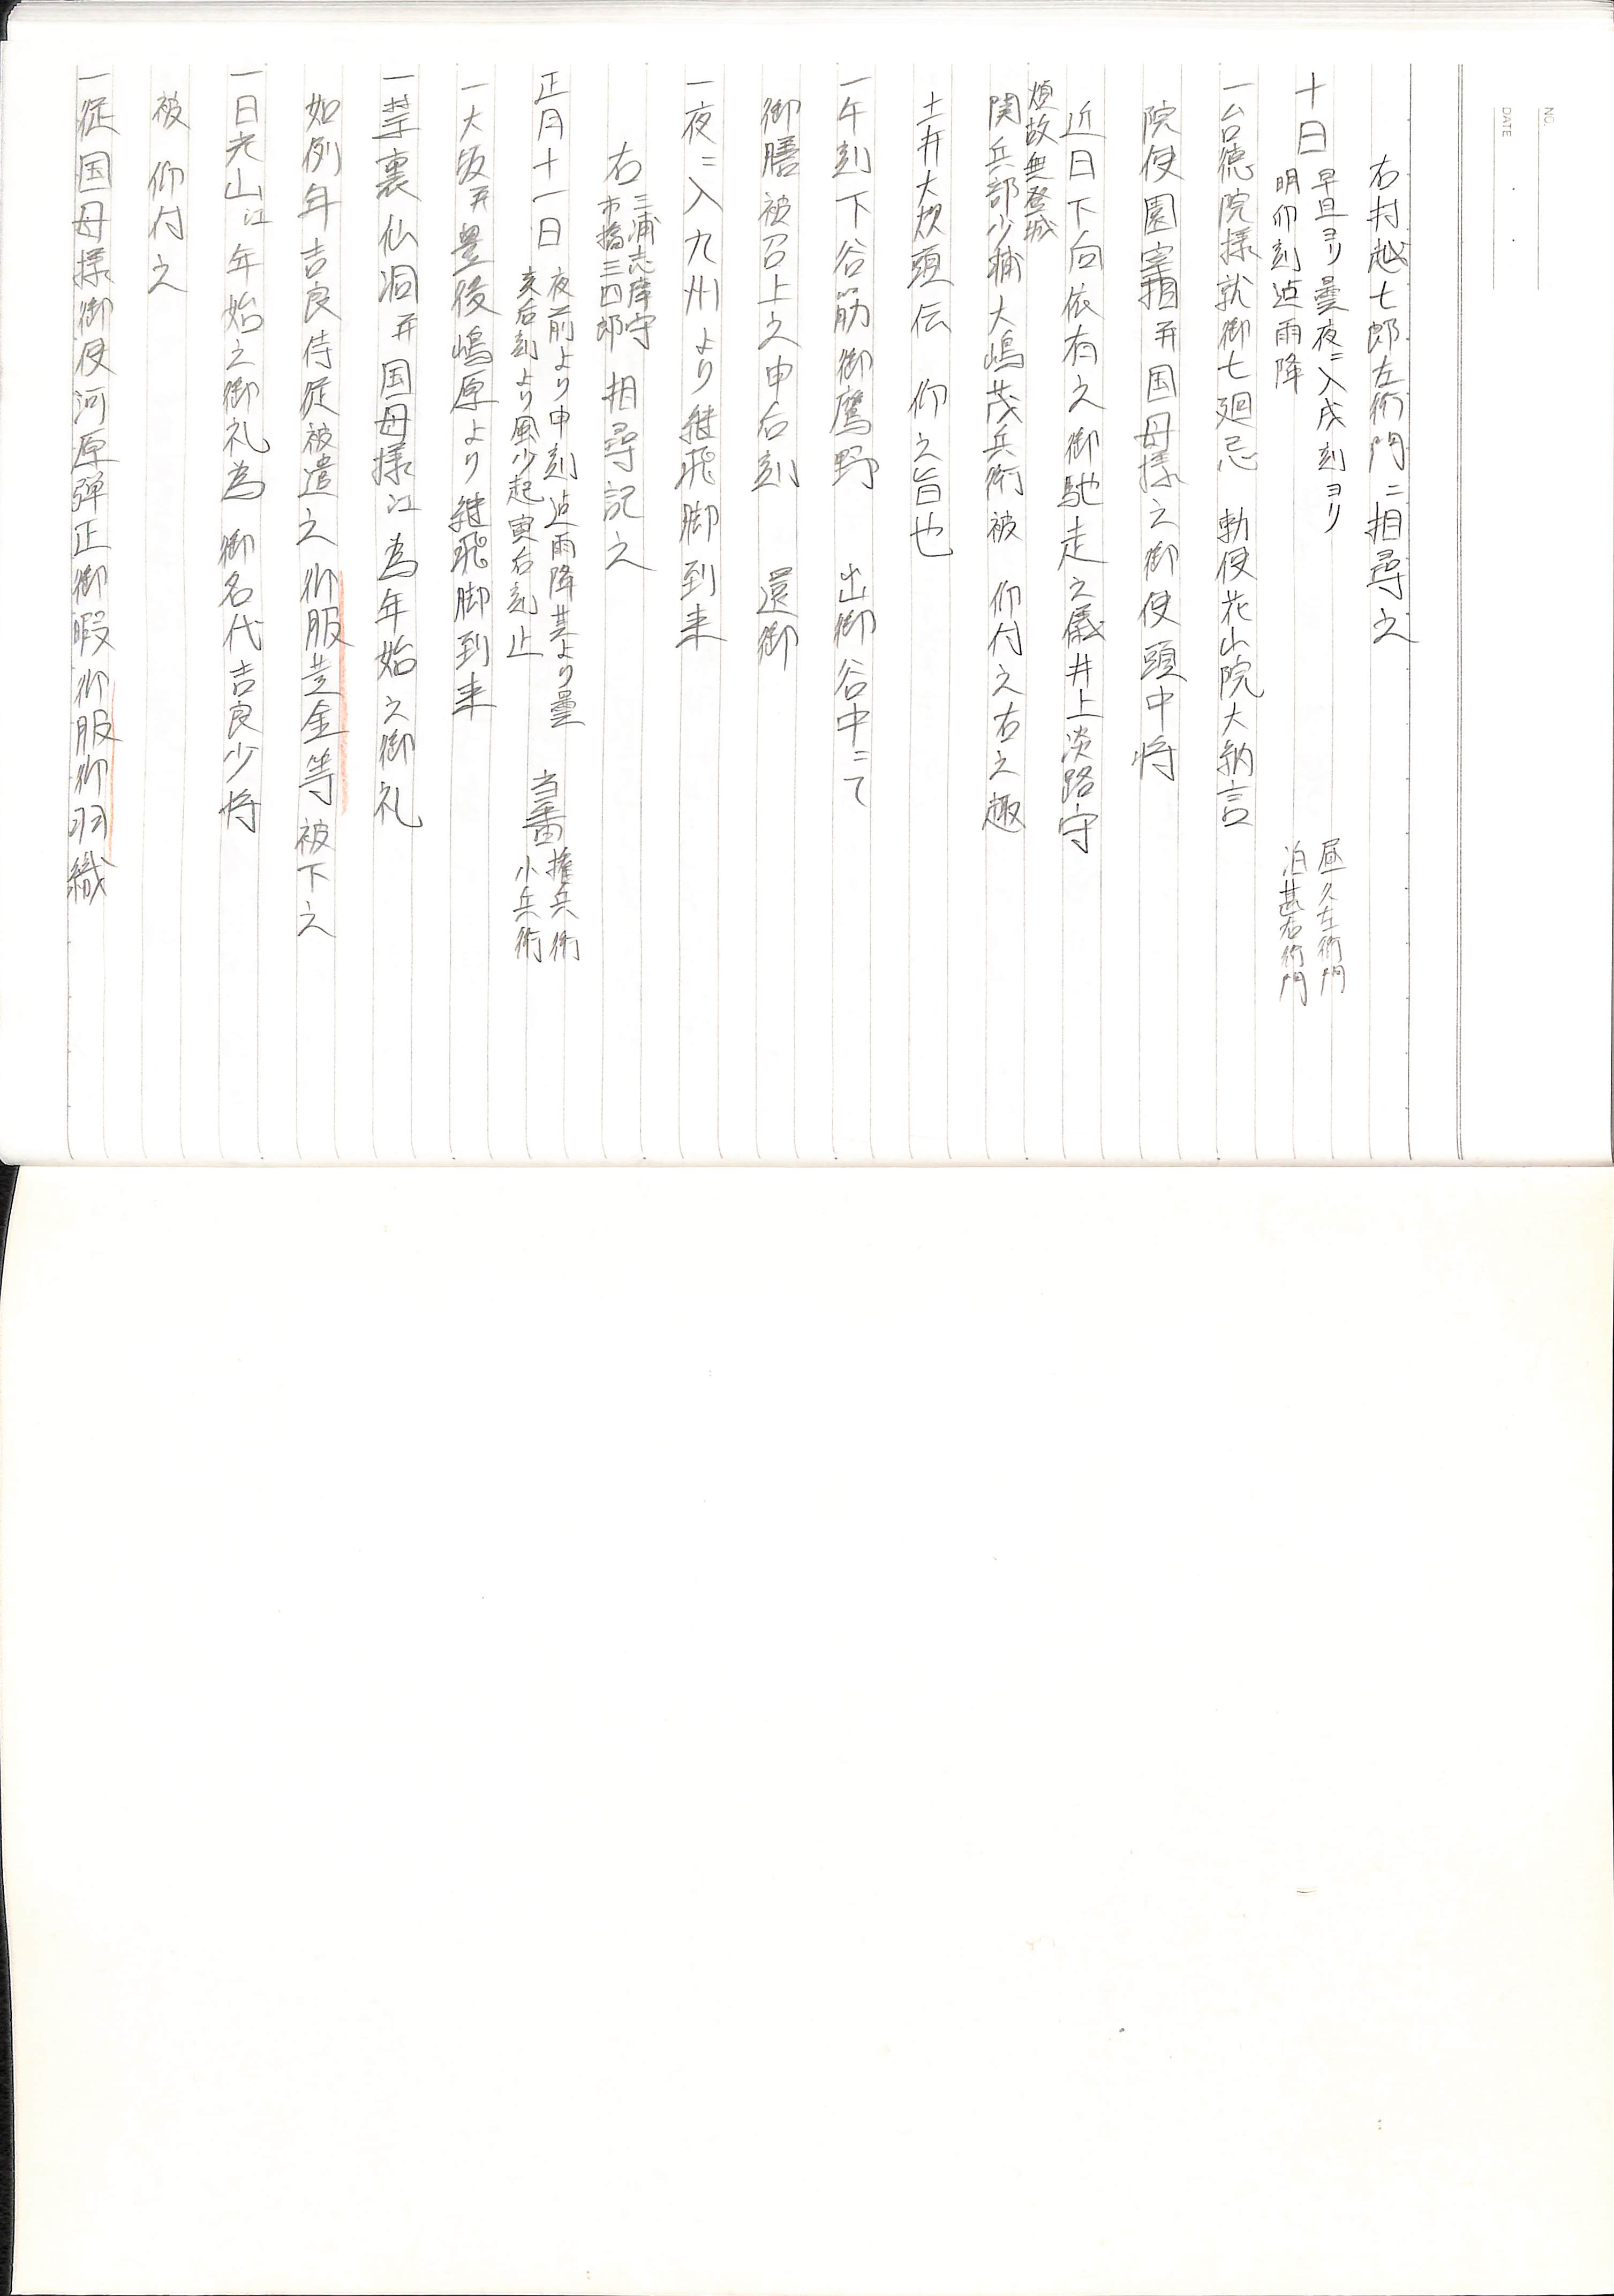 NO.
DATE
右村越七郎左衛門ニ相尋之
十日
早旦ヨリ曇夜ニ入戌刻ヨリ
明卯刻迠雨降
昼久左衛門
泊甚右衛門
一台徳院様就御七廻忌 勅使花山院大納言
院使園宰相并国母様之御使頭中将
近日下向依有之御馳走之儀井上淡路守
煩故無登城
関兵部少輔大嶋茂兵衛被 仰付之右之趣
土井大炊頭伝 仰之旨也
一午刻下谷筋御鷹野 出御谷中ニて
御膳被召上之申后刻 還御
一夜ニ入九州より継飛脚到来
右
三浦志摩守
市橋三四郎
相尋記之
正月十一日
夜前より申刻迠雨降其より曇
亥后刻より風少起寅后刻止
当番
権兵衛
小兵衛
一大坂并豊後嶋原より継飛脚到来
一禁裏仙洞并国母様江為年始之御礼
如例年吉良侍従被遣之御服黄金等被下之
一日光山江年始之御礼為 御名代吉良少将
被 仰付之
一従国母様御使河原弾正御暇御服御羽織